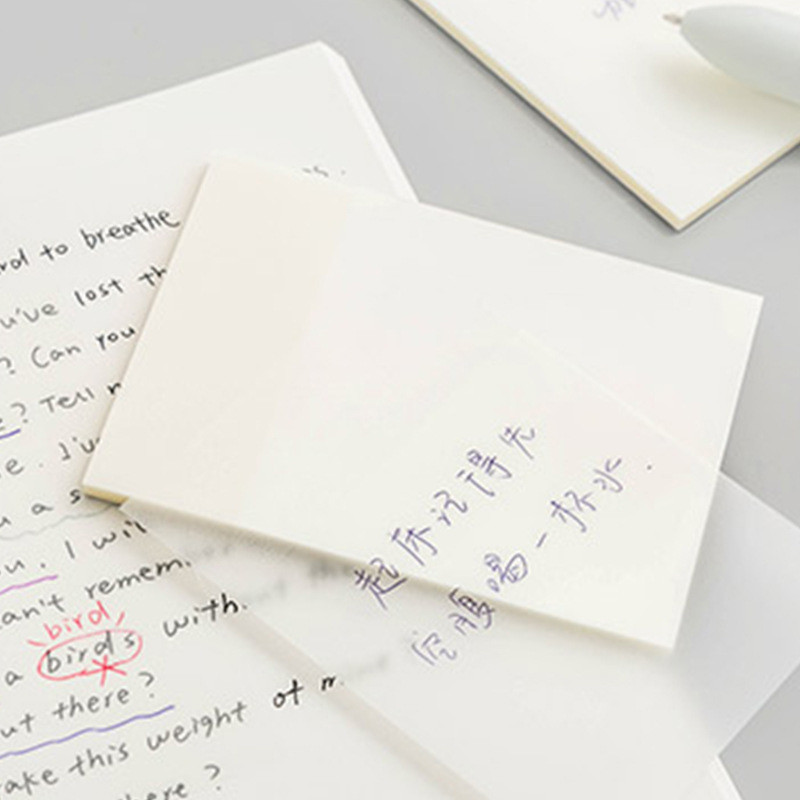 to breathe
u've lost
? Can you
? Tell
I'v
a s
u. I wil
an't remem
bird
a birds with
ut there?
ake this weight of
here?
起床记得先
空腹喝一杯水.